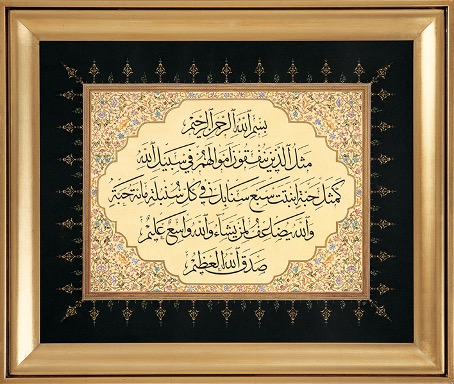 بِسْمِ ٱللَّهِ ٱلرَّحْمَٰنِ ٱلرَّحِيمِ
مَثَلُ ٱلَّذِينَ يُنْفِقُونَ أَمْوَالَهُمْ فِي سَبِيلِ ٱللَّهِ
كَمَثَلِ حَبَّةٍ أَنْبَتَتْ سَبْعَ سَنَابِلَ فِي كُلِّ سُنْبُلَةٍ مِائَةُ حَبَّةٍ
وَٱللَّهُ يُضَاعِفُ لِمَنْ يَشَاءُ وَٱللَّهُ وَاسِعٌ عَلِيمٌ
صَدَقَ ٱللَّهُ ٱلْعَظِيمُ